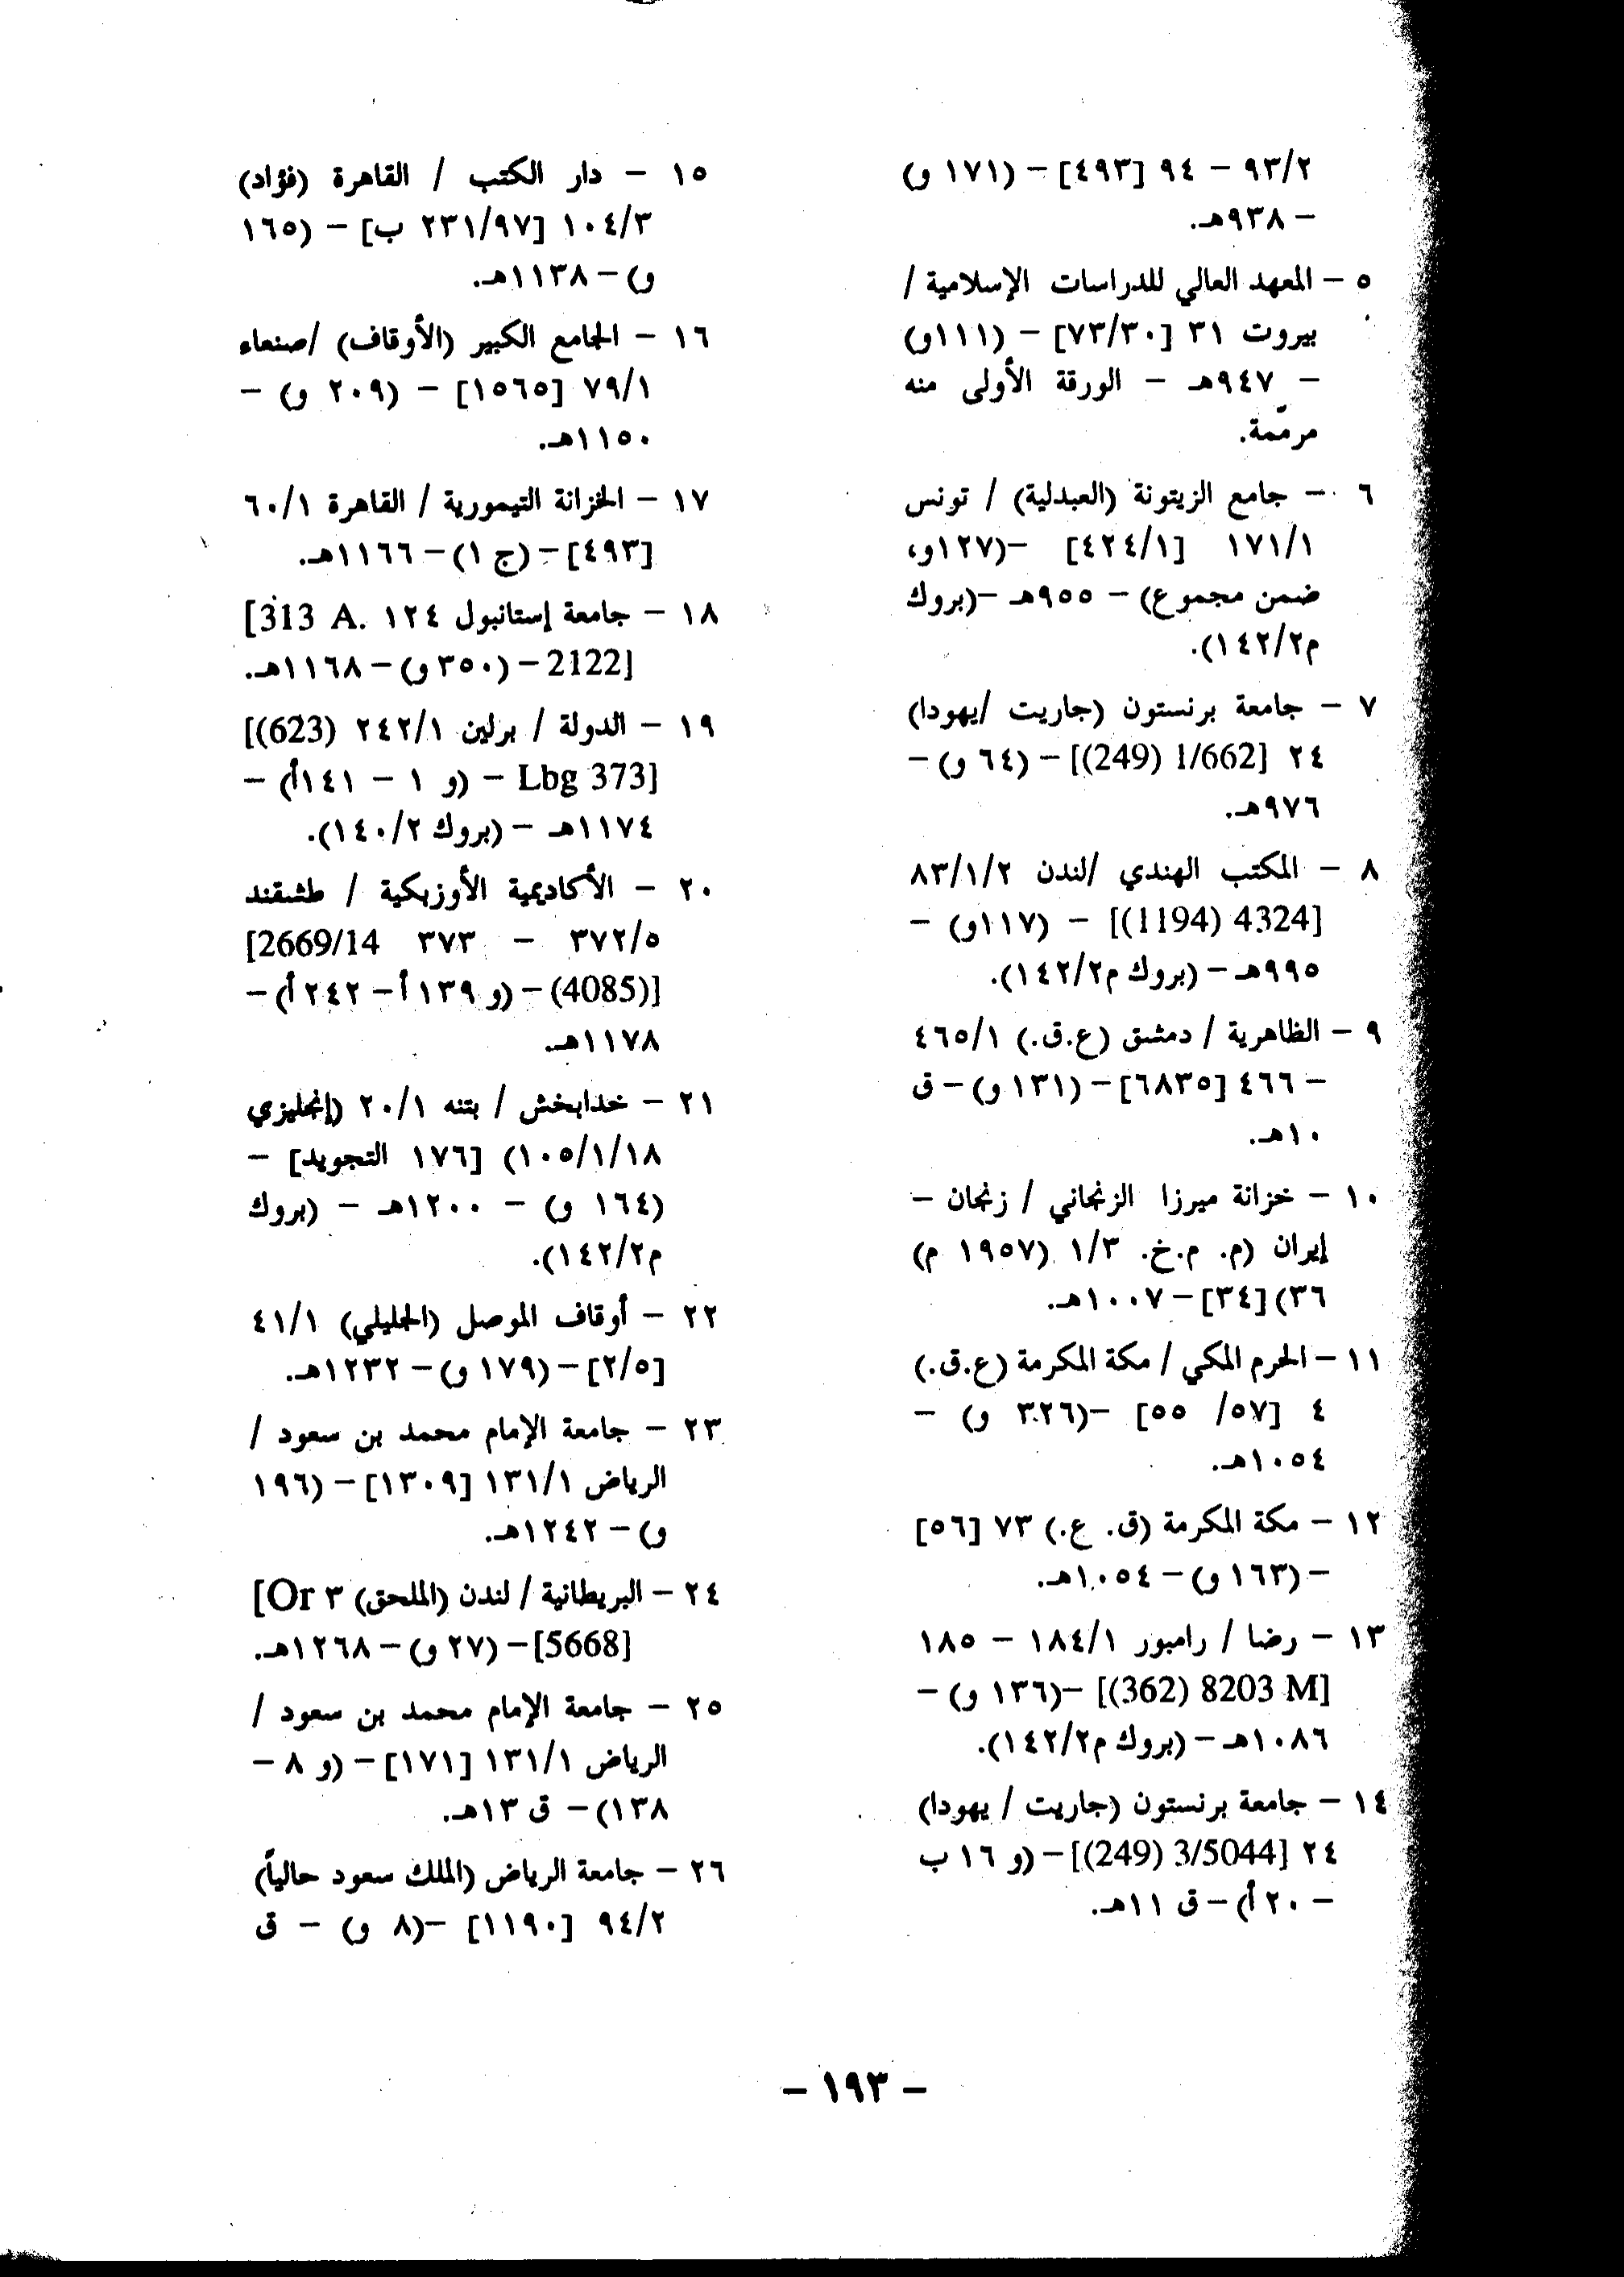 ٩٣/٢ – ٩٤ [٤٩٣] – (١٧١ و)
– ٩٣٨هـ.
٥ – المعهد العالي للدراسات الإسلامية /
بيروت ٣١ [٧٣/٣٠] – (١١١و)
– ٩٤٧هـ – الورقة الأولى منه
مرمّمة.
٦ – جامع الزيتونة (العبدلية) / تونس
١٧١/١ [٤٢٤/١] –(١٢٧و،
ضمن مجموع) – ٩٥٥هـ –(بروك
م١٤٢/٢).
٧ – جامعة برنستون (جاريت /يهودا)
٢٤ [1/662 (249)] – (٦٤ و) –
٩٧٦هـ.
٨ – المكتب الهندي /لندن ٨٣/١/٢
[4324 (1194)] – (١١٧و) –
٩٩٥هـ – (بروك م١٤٢/٢).
٩ – الظاهرية / دمشق (ع.ق.) ٤٦٥/١
– ٤٦٦ [٦٨٣٥] – (١٣١ و) – ق
١٠هـ.
١٠ – خزانة ميرزا الزنجاني / زنجان –
إيران (م. م.خ. ١/٣ (١٩٥٧ م)
٣٦) [٣٤] – ١٠٠٧هـ.
١١ – الحرم المكي / مكة المكرمة (ع.ق.)
٤ [٥٧/ ٥٥] –(٣٢٦ و) –
١٠٥٤هـ.
١٢ – مكة المكرمة (ق. ع.) ٧٣ [٥٦]
– (١٦٣ و) – ١٠٥٤هـ.
١٣ – رضا / رامبور ١٨٤/١ – ١٨٥
[8203 M (362)] –(١٣٦ و) –
١٠٨٦هـ – (بروك م١٤٢/٢).
١٤ – جامعة برنستون (جاريت / يهودا)
٢٤ [3/5044 (249)] – (و ١٦ ب
– ٢٠ أ) – ق ١١هـ.
١٥ – دار الكتب / القاهرة (فؤاد)
١٠٤/٣ [٢٣١/٩٧ ب] – (١٦٥
و) – ١١٣٨هـ.
١٦ – الجامع الكبير (الأوقاف) /صنعاء
٧٩/١ [١٥٦٥] – (٢٠٩ و) –
١١٥٠هـ.
١٧ – الخزانة التيمورية / القاهرة ٦٠/١
[٤٩٣] – (ج ١) – ١١٦٦هـ.
١٨ – جامعة إستانبول ١٢٤ [313 A.
2122] – (٣٥٠ و) – ١١٦٨هـ.
١٩ – الدولة / برلين ٢٤٢/١ [(623)
Lbg 373] – (و ١ – ١٤١أ) –
١١٧٤هـ – (بروك ١٤٠/٢).
٢٠ – الأكاديمية الأوزبكية / طشقند
٣٧٢/٥ – ٣٧٣ [2669/14
(4085)] – (و ١٣٩ أ – ٢٤٢ أ) –
١١٧٨هـ.
٢١ – خدابخش / بتنه ٢٠/١ (إنجليزي
١٠٥/١/١٨) [١٧٦ التجويد] –
(١٦٤ و) – ١٢٠٠هـ – (بروك
م١٤٢/٢).
٢٢ – أوقاف الموصل (الجليلي) ٤١/١
[٢/٥] – (١٧٩ و) – ١٢٣٢هـ.
٢٣ – جامعة الإمام محمد بن سعود /
الرياض ١٣١/١ [١٣٠٩] – (١٩٦
و) – ١٢٤٢هـ.
٢٤ – البريطانية / لندن (الملحق) ٣ [Or
5668] – (٢٧ و) – ١٢٦٨هـ.
٢٥ – جامعة الإمام محمد بن سعود /
الرياض ١٣١/١ [١٧١] – (و ٨ –
١٣٨) – ق ١٣هـ.
٢٦ – جامعة الرياض (الملك سعود حالياً)
٩٤/٢ [١١٩٠] –(٨ و) – ق
– ١٩٣ –